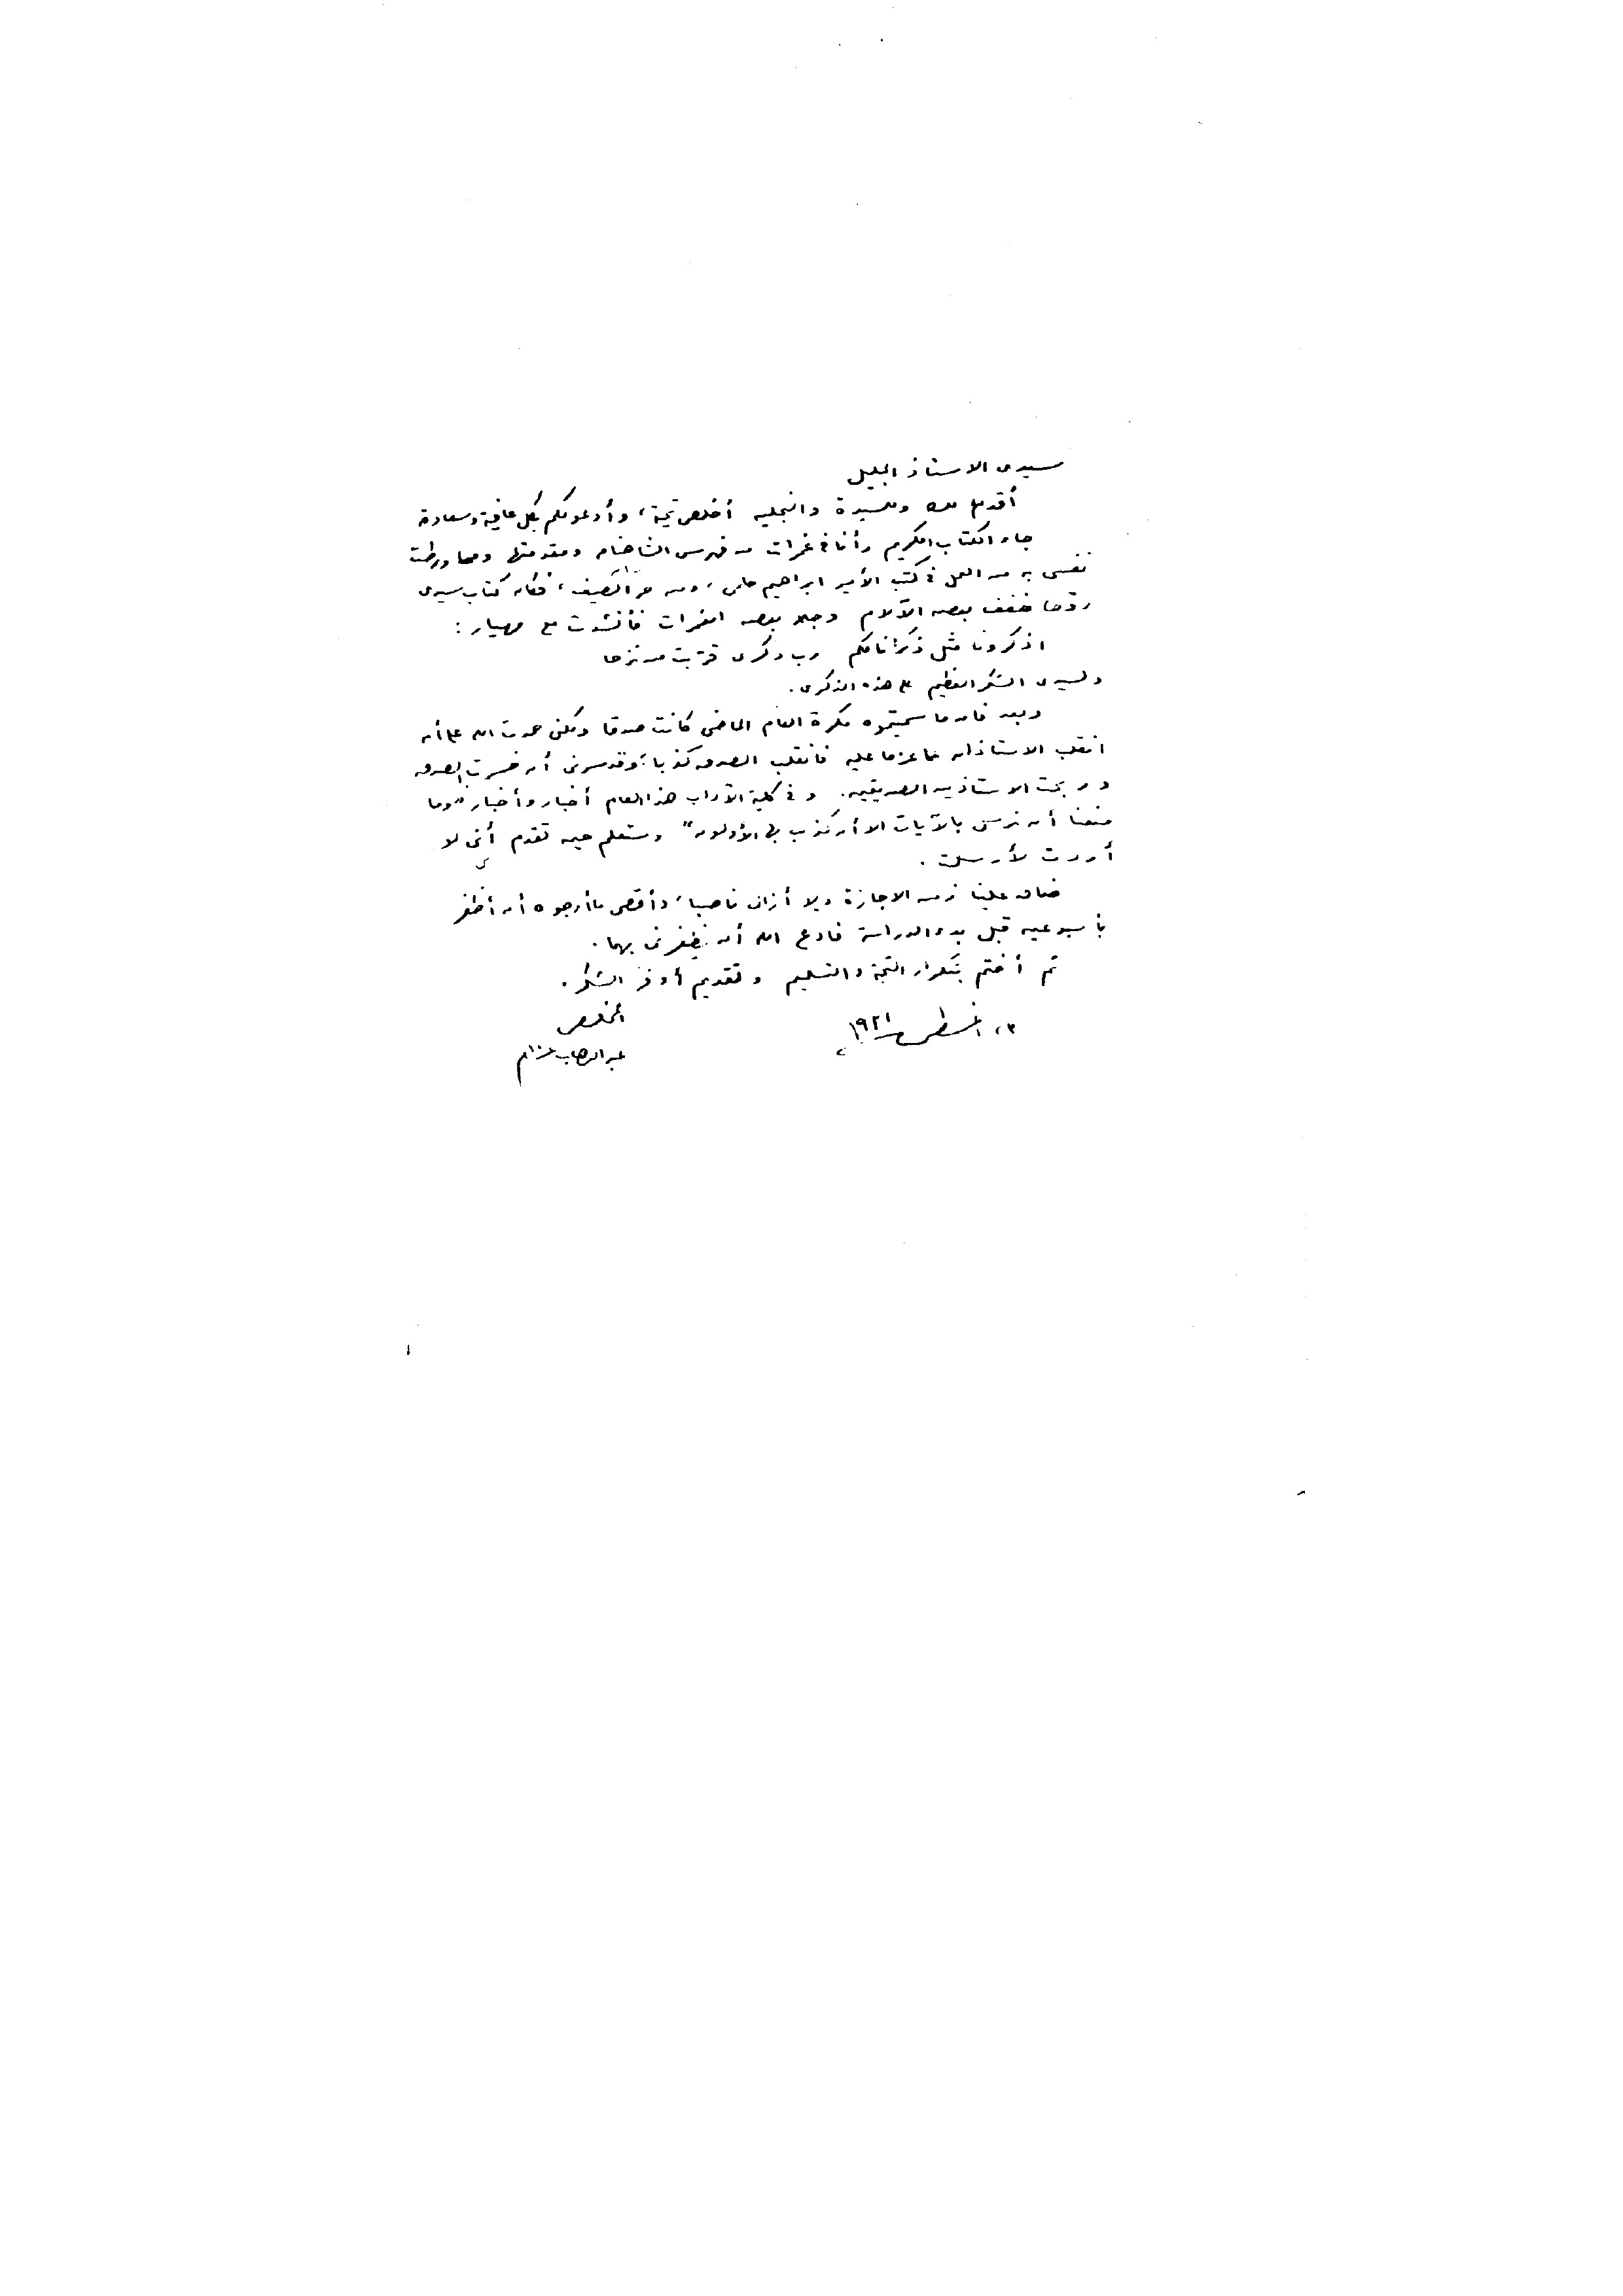 سيدى الاستاذ الجليل
أقدم لك وللسيدة والنجلين أخلص تحية، وأدعو لكم بكل عافية وسعادة
جاء الكتاب الكريم وأنا فى غمرات من فهرس الشاهنامه ومقدمتها ومما ورطت
نفسى به من العمل فى كتب الأمير ابراهيم حلمى، ومن حر الصيف، فكان كتاب سيدى
روحا خفف بعض الآلام وجلا بعض الغمرات فأنشدت مع مهيار :
اذكرونا مثل ذكرانا لكم رب ذكرى قربت من نزحا
ولسيدى الشكر العظيم على هذه الذكرى.
وبعد فان ما سميتموه مكرة العام الماضى كانت صدقا ولكنى حمدت الله على أن
انقلب الاستاذان عما عزما عليه فانقلب الصدق كذبا، وقد سرنى أن خسرت الصدق
وربحت الاستاذين الصديقين. وفى كلية الآداب هذا العام أخبار وأخبار "وما
منعنا أن نرسل بالآيات الا أن كذب بها الأولون" وستعلم حين تقدم أنى لو
أردت لأرسلت .
ضاق علينا زمن الاجازة ولا أزال ناصبا، وأقصى ما أرجوه أن أظفر
بأسبوعين قبل بدء الدراسة فادع الله أن يظفرنى بهما.
ثم أختم بتكرار التحية والتسليم وتقديم أوفر الشكر.
المخلص
اغسطس
عبد الوهاب عزام